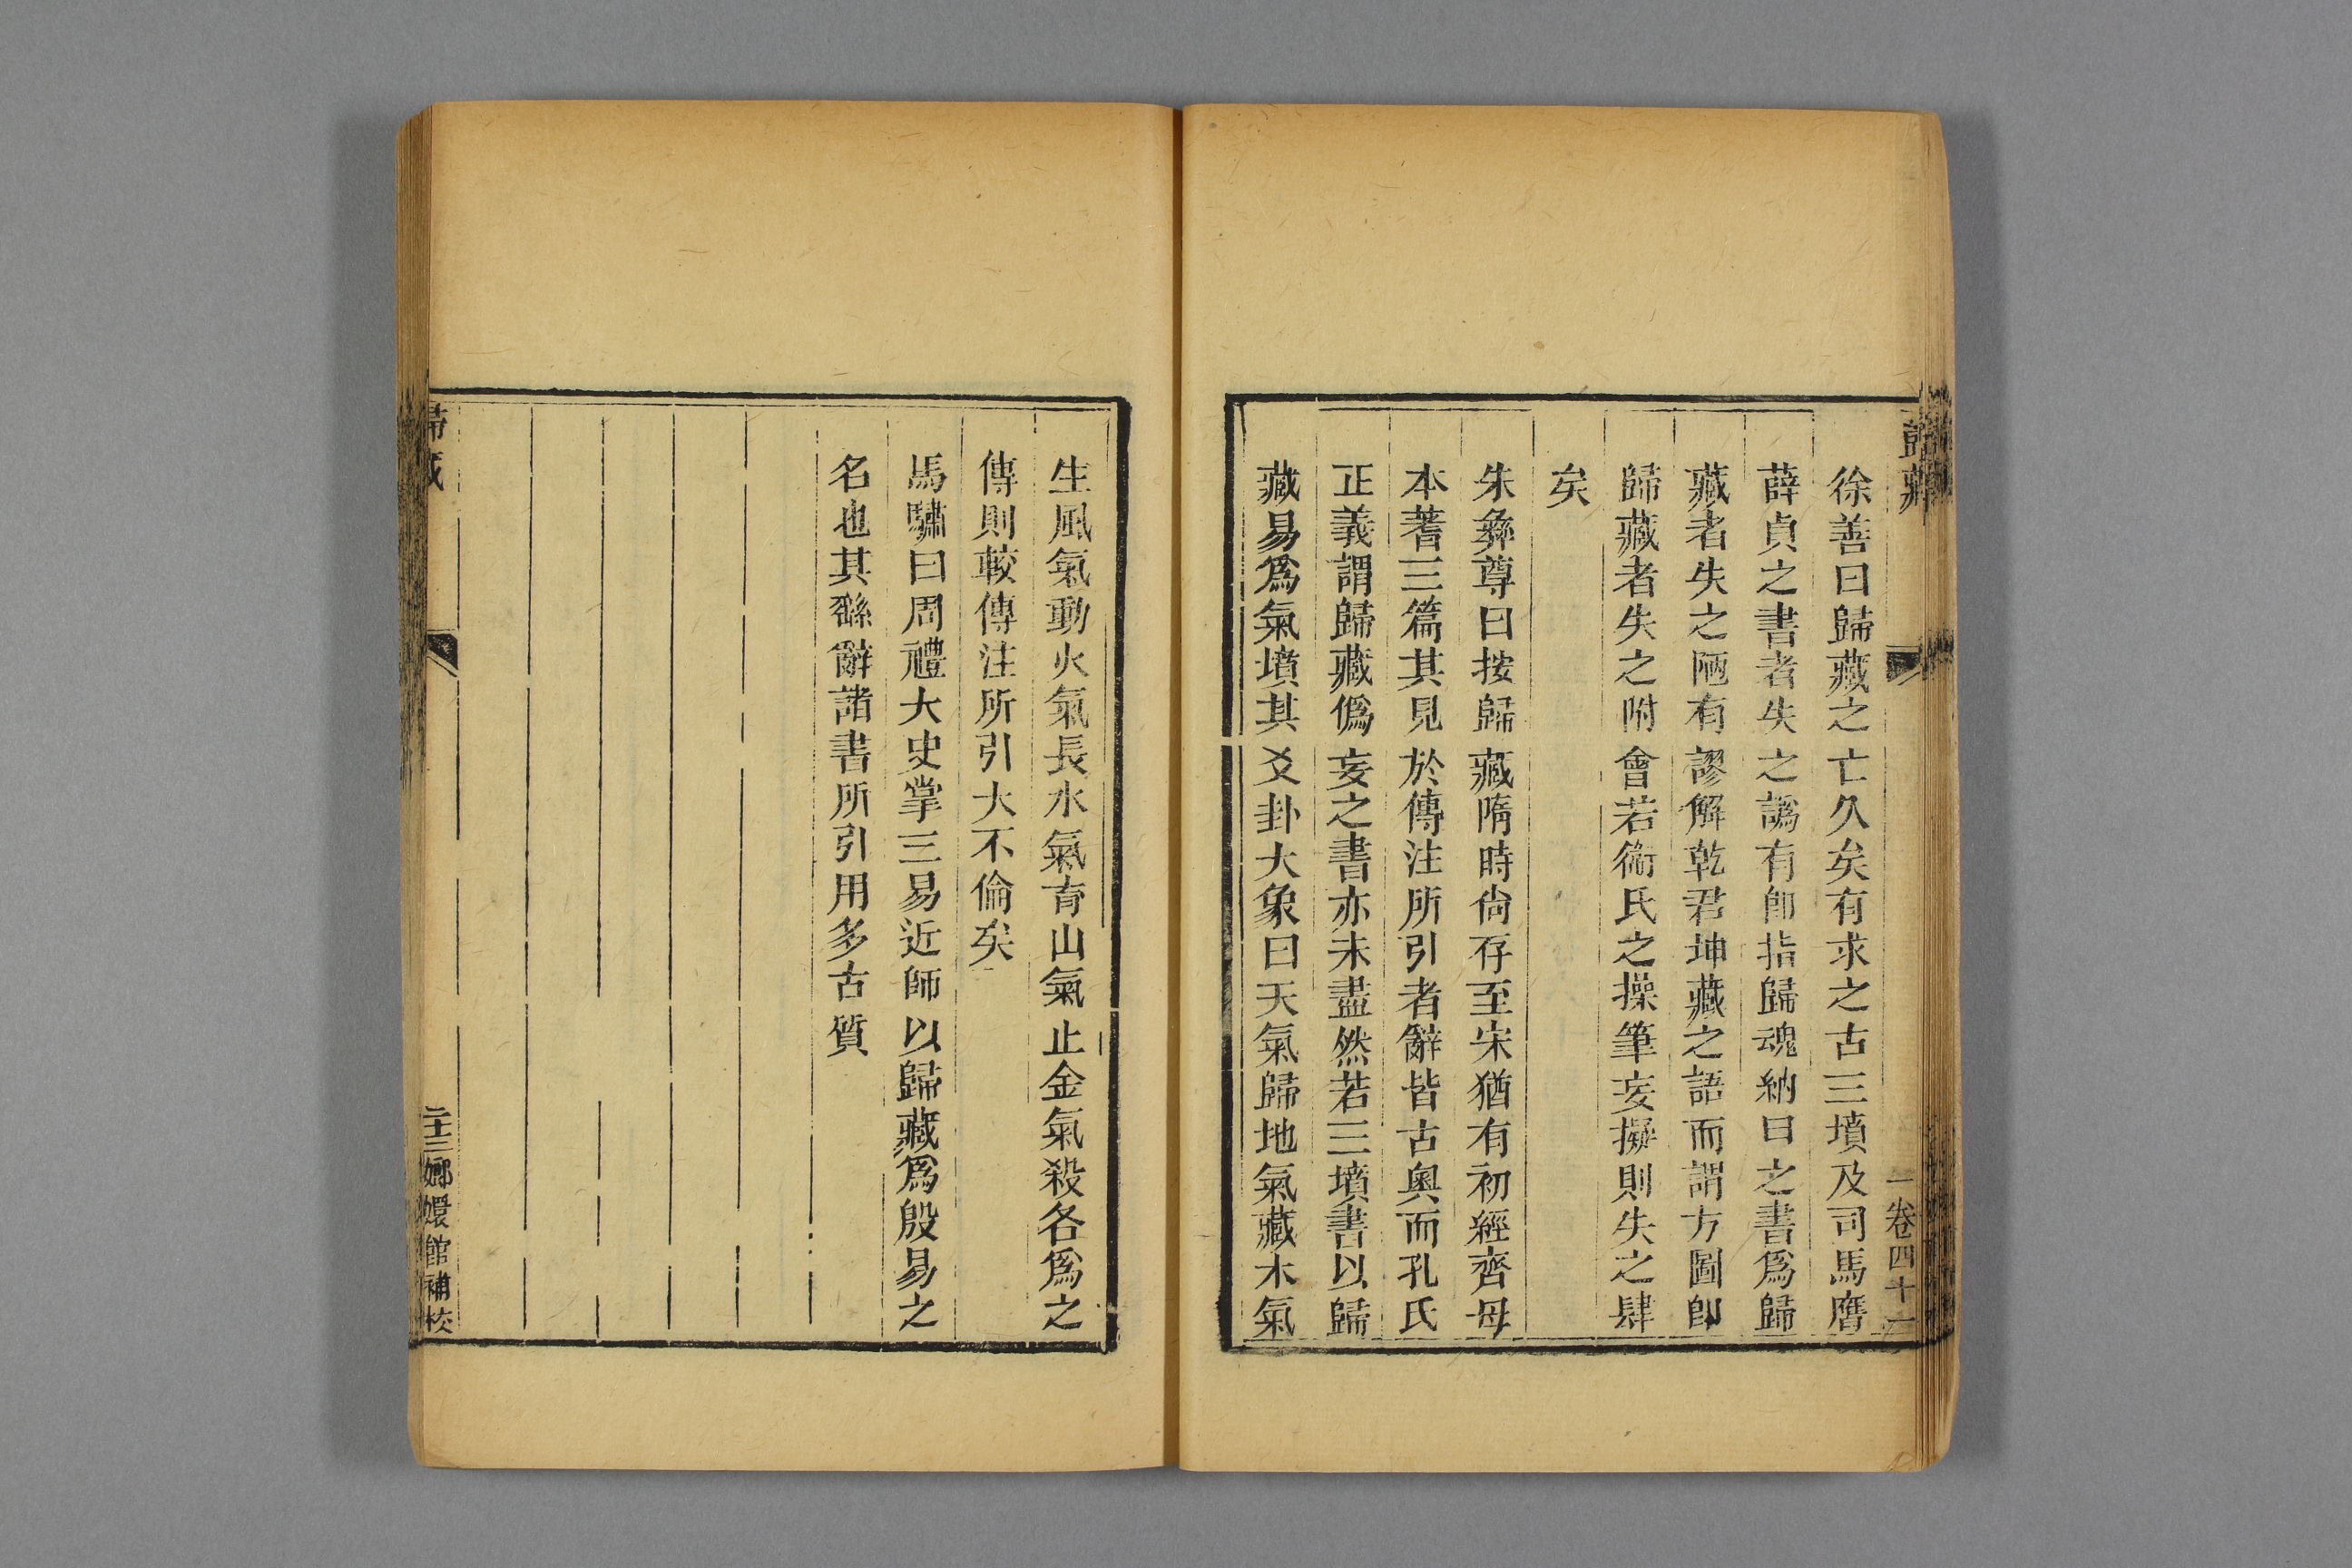 歸藏
一卷四十一
徐善曰歸藏之亡久矣有求之古三墳及司馬膺
薛貞之書者失之譌有卽指歸魂納曰之書爲歸
藏者失之陋有謬解乾君坤藏之語而謂方圖卽
歸藏者失之附會若衞氏之操筆妄擬則失之肆
矣
朱彝尊曰按歸藏隋時尙存至宋猶有初經齊母
本蓍三篇其見於傳注所引者辭皆古奧而孔氏
正義謂歸藏僞妄之書亦未盡然若三墳書以歸
藏易爲氣墳其爻卦大象曰天氣歸地氣藏木氣
生風氣動火氣長水氣育山氣止金氣殺各爲之
傳則較傳注所引大不倫矣
馬驌曰周禮大史掌三易近師以歸藏爲殷易之
名也其繇辭諸書所引用多古質
歸藏
二十三
嫏嬛館補校